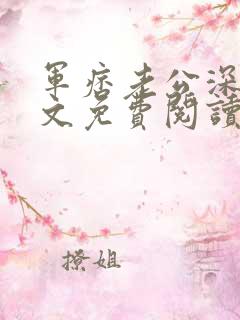 軍痞老公深
文免費閱讀
撩姐